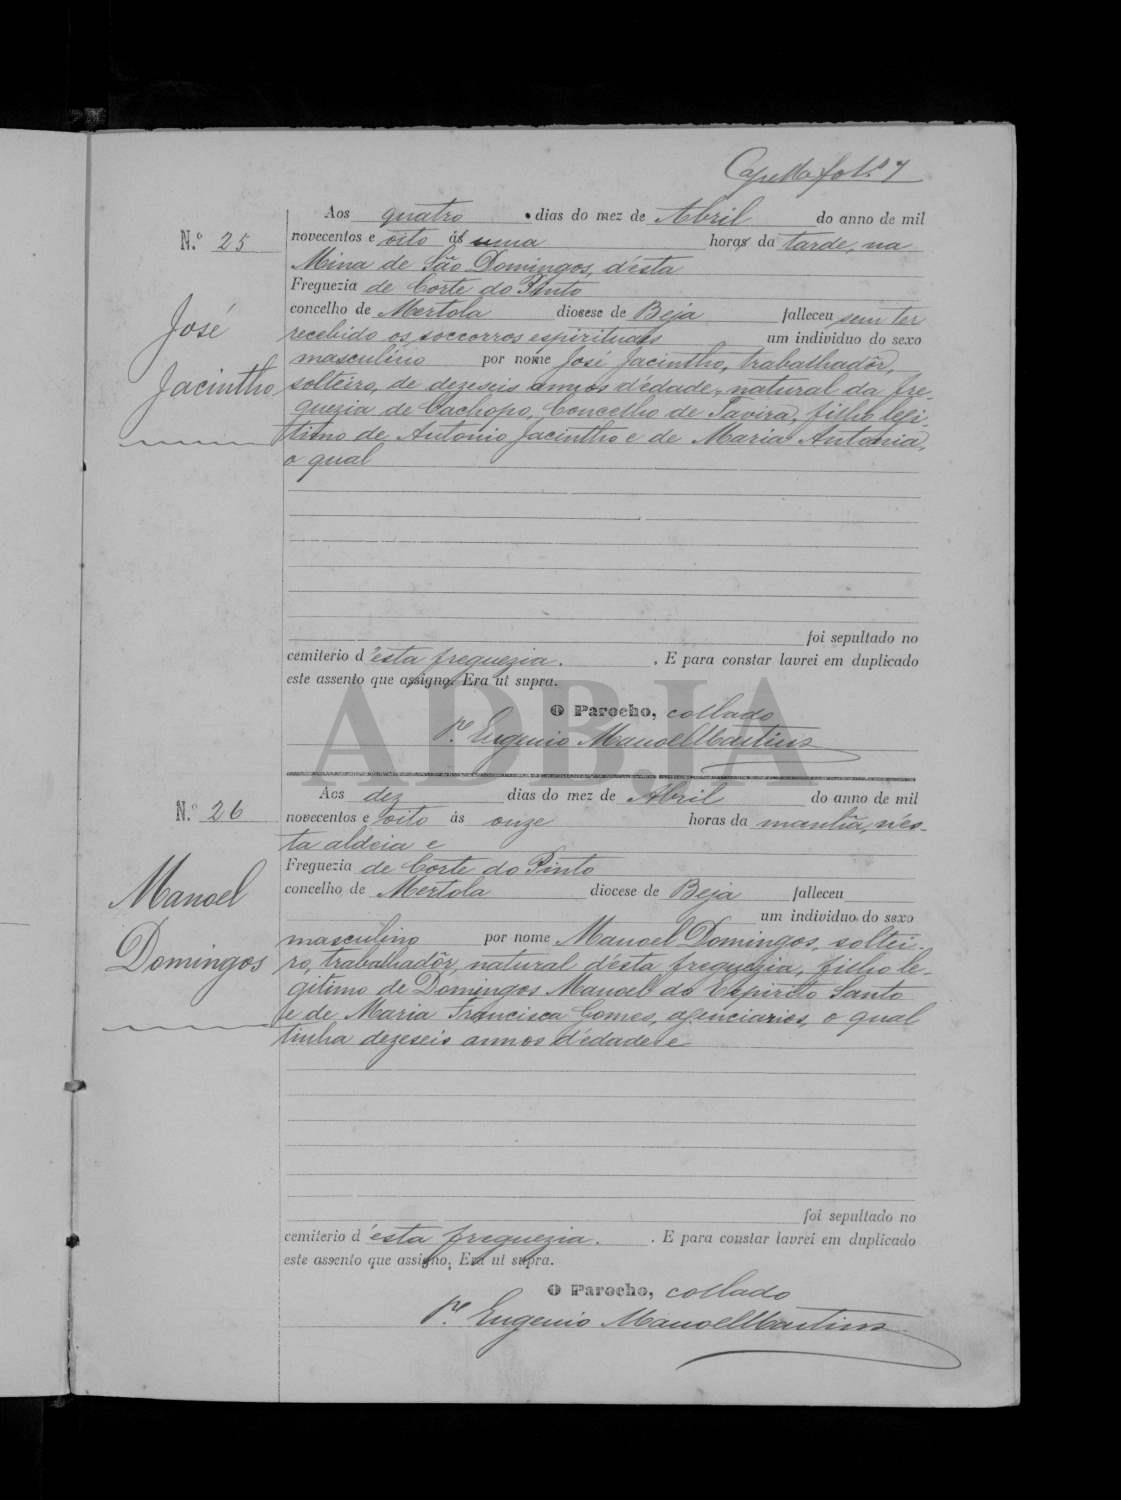 Capella fol. 7
Aos quatro dias do mez de Abril do anno de mil
N.º 25
novecentos e oito ás uma horas da tarde, na
Mina de São Domingos, d'ésta
Freguezia de Corte do Pinto
concelho de Mertola diocese de Beja falleceu sem ter
recebido os soccorros espirituaes um individuo do sexo
José
masculino por nome José Jacintho, trabalhadôr,
Jacintho
solteiro, de dezeseis annos d'édade, natural da fre-
guezia de Cachopo, Concelho de Tavira, filho legi-
timo de Antonio Jacintho e de Maria Antonia,
o qual
foi sepultado no
cemiterio d'ésta freguezia. E para constar lavrei em duplicado
este assento que assigno. Era ut supra.
O Parocho, collado
P.e Eugenio Manoel Martins
ADBJA
Aos dez dias do mez de Abril do anno de mil
N.º 26
novecentos e oito ás onze horas da manhã, n'és-
ta aldeia e
Freguezia de Côrte do Pinto
concelho de Mertola diocese de Beja falleceu
um individuo do sexo
Manoel
masculino por nome Manoel Domingos, soltei-
Domingos
ro, trabalhadôr, natural d'ésta freguezia, filho le-
gitimo de Domingos Manoel do Espirito Santo
e de Maria Francisca Gomes, agenciarios, o qual
tinha dezeseis annos d'édade e
foi sepultado no
cemiterio d'ésta freguezia. E para constar lavrei em duplicado
este assento que assigno. Era ut supra.
O Parocho, collado
P.e Eugenio Manoel Martins